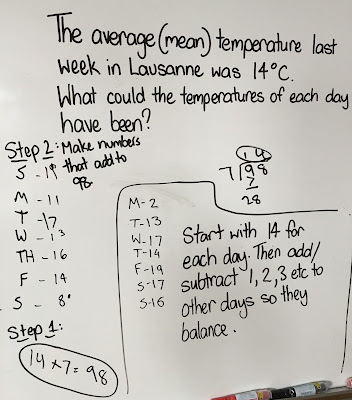 The average (mean) temperature last
week in Lausanne was 14°C.
What could the temperatures of each day
have been?
Step 2: Make numbers
that add to
98.
S - 19
M - 11
T - 17
W - 13
TH - 16
F - 14
S - 8
Step 1:
14 x 7 = 98
14
7)98
7
28
M - 2
T - 13
W - 17
T - 14
F - 19
S - 17
S - 16
Start with 14 for
each day. Then add/
subtract 1, 2, 3 etc to
other days so they
balance.